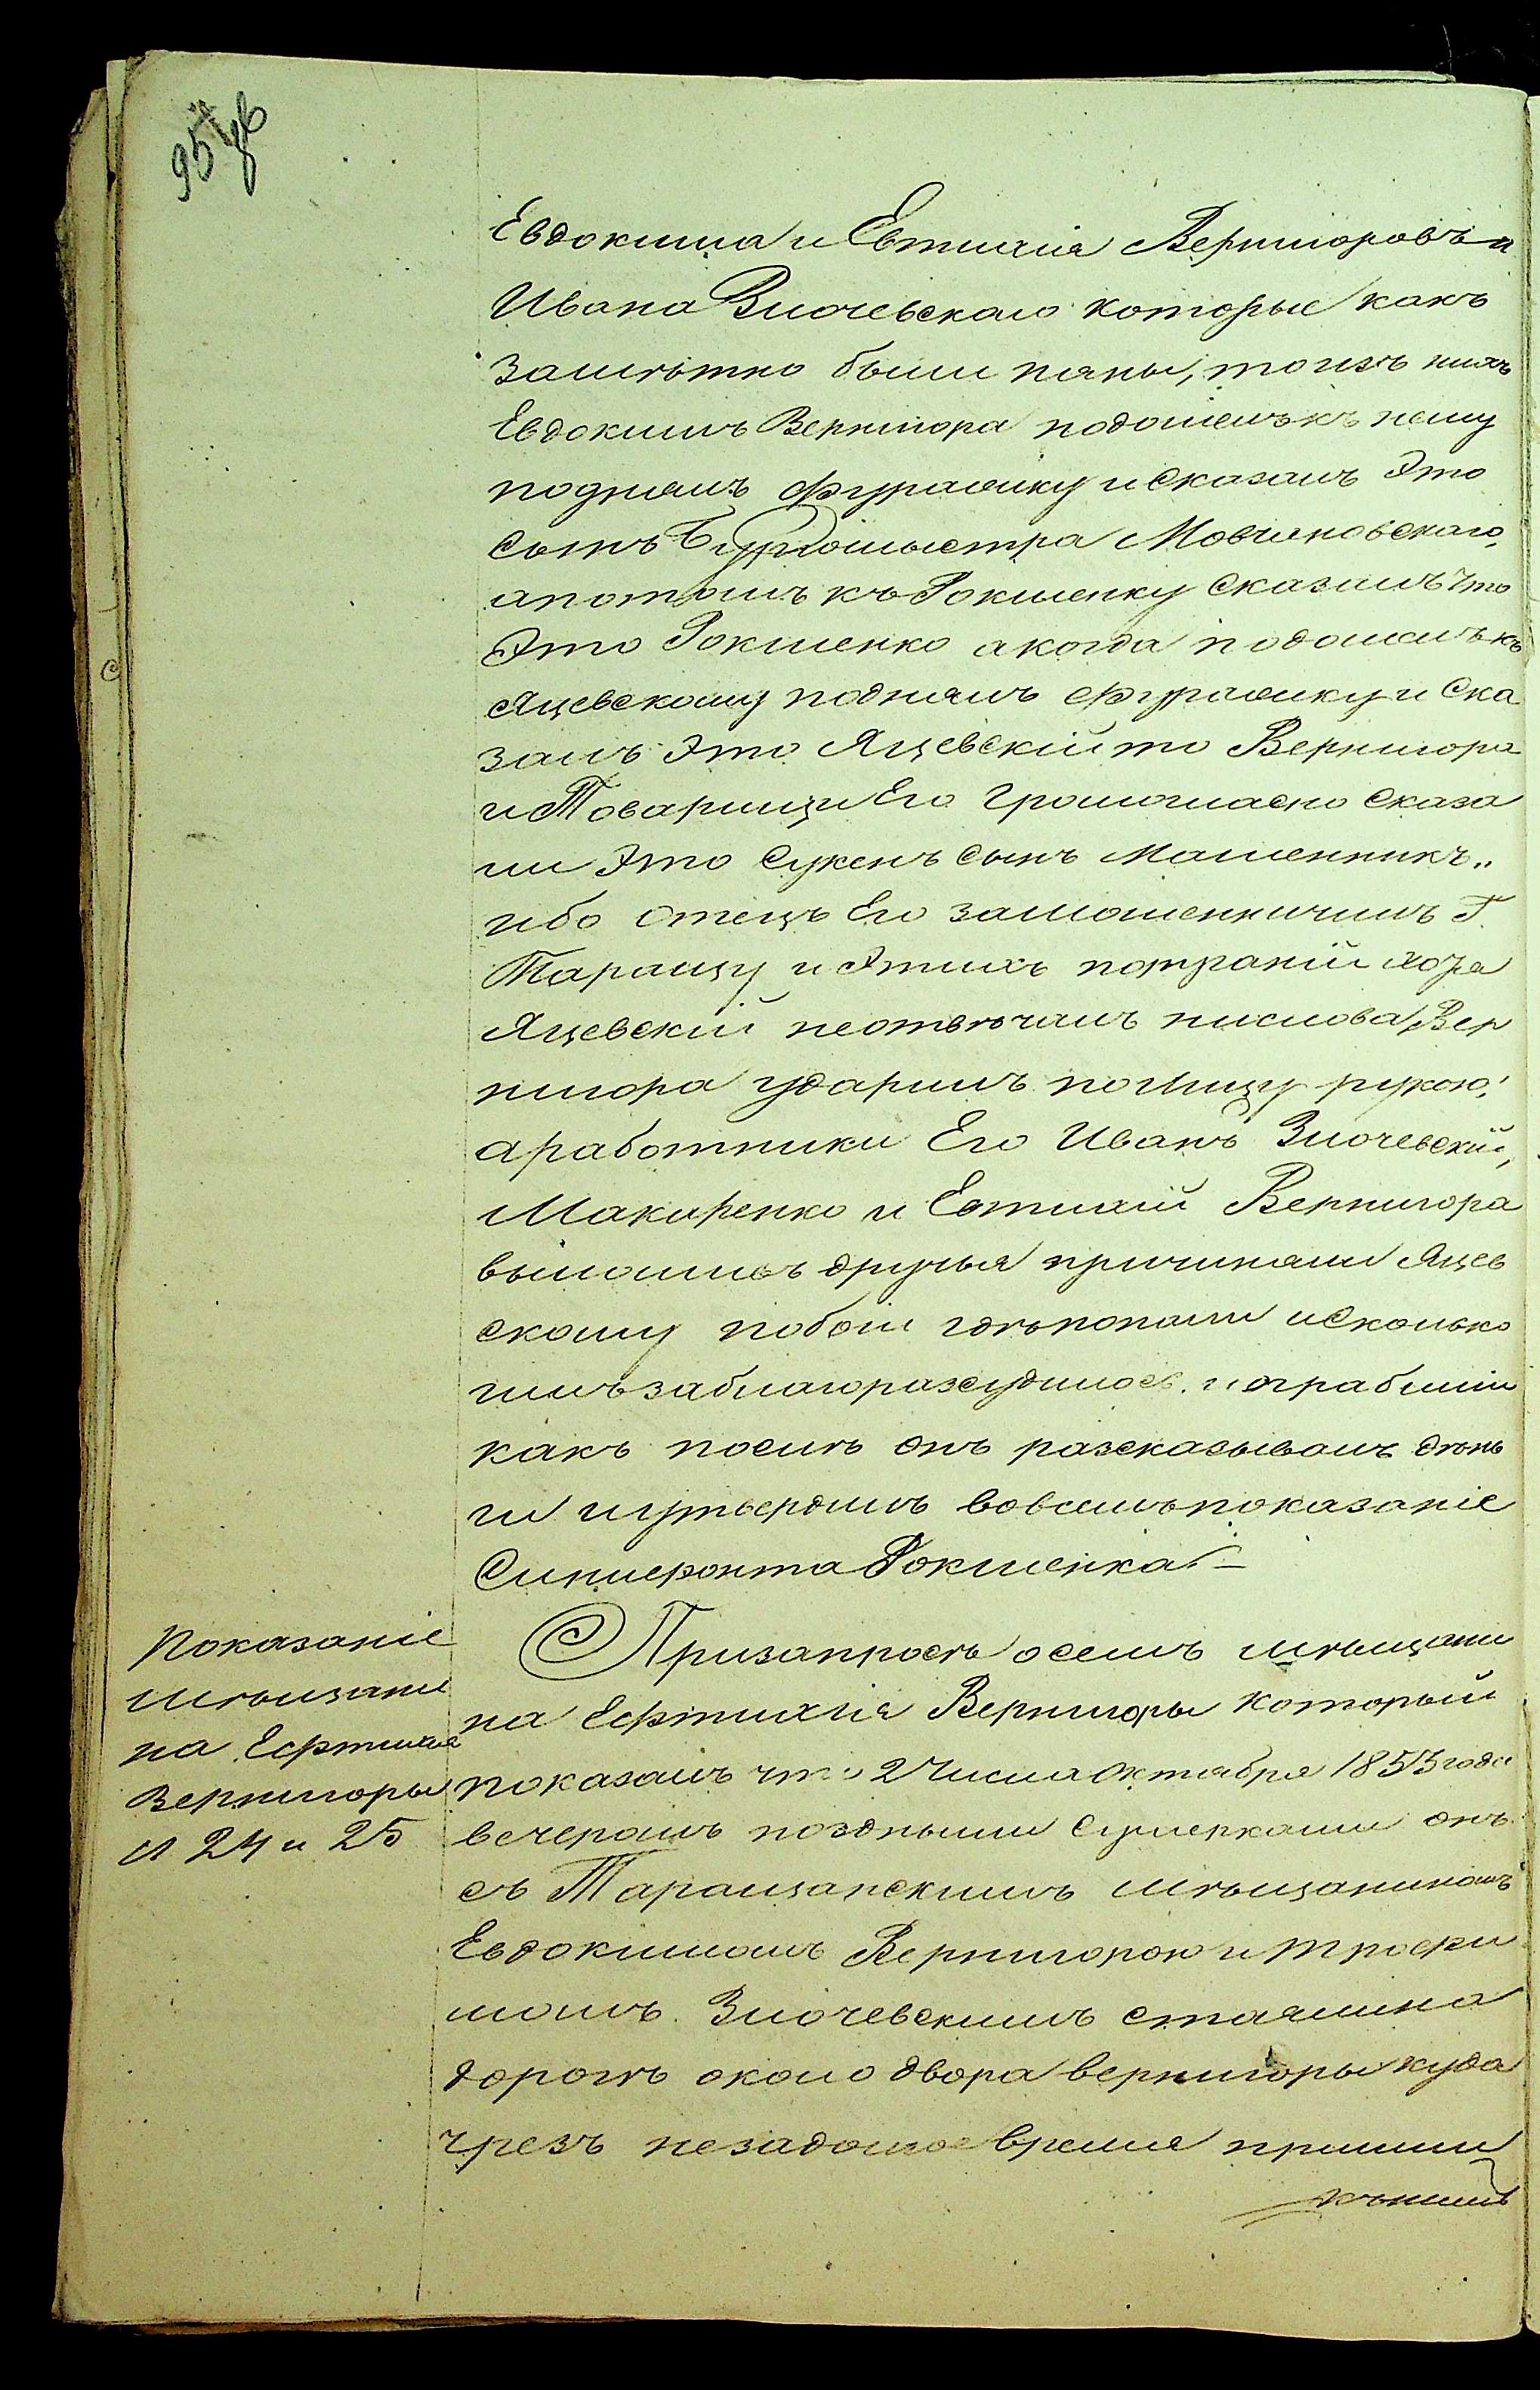 95
Евдокима и Евтихія Вернигоровъ и
Ивана Злочевскаго которые какъ
замѣтно были пяны, то изъ нихъ
Евдокимъ Вернигора подошелъ къ нему
поднялъ фуражку и сказалъ это
сынъ Бургомыстра Мовчановскаго,
апотомъ къ Рокшенку сказалъ что
Это Рокшенко а когда подошелъ къ
Яцевскому поднялъ фуражку и ска
залъ это Яцевскій то Вернигора
и Товарищи Его громогласно сказа
ли это сукенъ сынъ мошенникъ„
ибо отецъ Его замошенничилъ Г.
Таращу и этихъ хотя
Яцевскій неотвѣчалъ нислова Вер
нигора ударилъ полицу рукою,
аработники Его Иванъ Злочевскій,
Макиренко и Евтихій Вернигора
выломивъ дручья причиняли Яцев
скому побои идѣпопали исколько
имъ заблагоразсудилось. и ограбили
какъ послѣ онъ разсказывалъ день
ги иутвердилъ вовсемъ показаніе
Рокшенка. —
Показаніе
мѣщани
на Ефтихія
Вернигоры
л 24 и 25
Призапросѣ осемъ мѣщани
на Ефтихія Вернигоры который
показалъ что 2 числа октября 1853 года
вечеромъ поздными сумерками онъ
съ Таращанскимъ мѣщаниномъ
Евдокимомъ Вернигорою и трофи
момъ Злочевскимъ стояли на
дорогѣ около двора вернигоры куда
чрезъ незадолгое время пришли
кънимъ